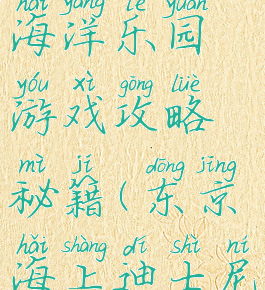 hǎi yáng lè yuán
海洋乐园
yóu xì gōng lüè
游戏攻略
mì jí dōng jīng
秘籍(东京
hǎi shàng dí shì ní
海上迪士尼